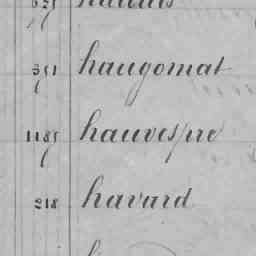 351 haugomat
1185 hauvespre
218 havard